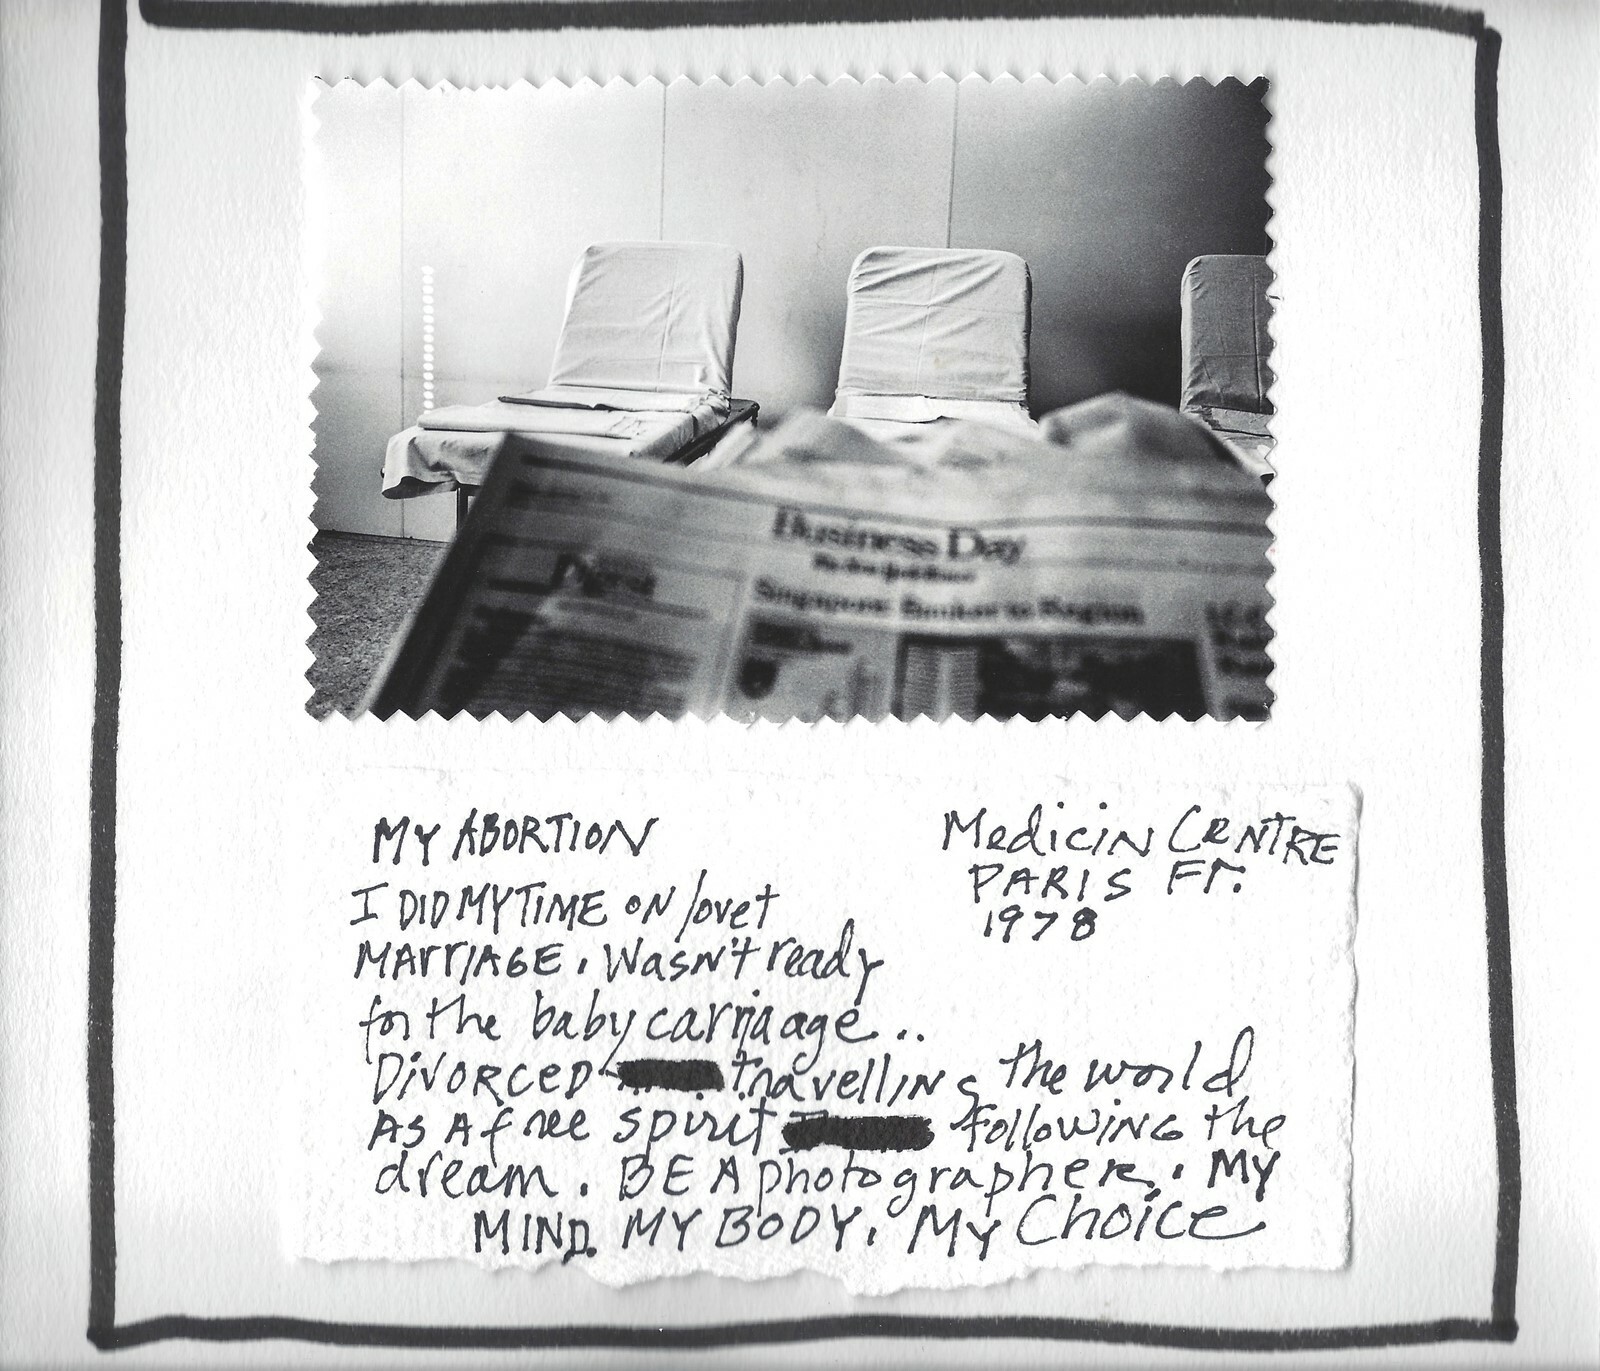 Business Day
MY ABORTION
Medicin CENTRE
PARIS Fr.
1978
I DID MY TIME ON love +
MARRIAGE. Wasn't ready
for the baby carriaage..
DiVORCED travelliNg the world
As A free spirit following the
dream. BE A photographer. MY
MIND. MY BODY. My Choice